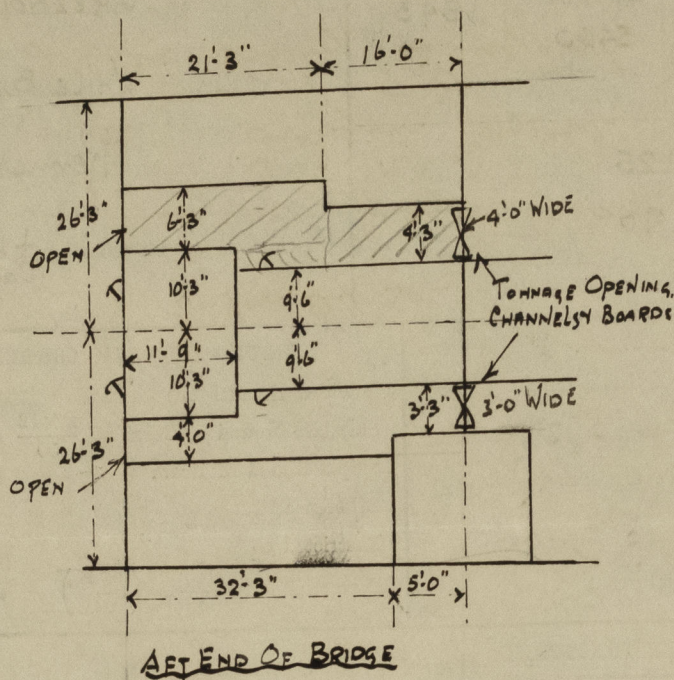 21'-3" 16'-0"
26'-3"
6'-3"
4'-3"
4'-0" WIDE
OPEN
10'-3"
9'-6"
TONNAGE OPENING,
CHANNELS & BOARDS
11'-9"
9'-6"
10'-3"
3'-3"
3'-0" WIDE
4'-0"
26'-3"
OPEN
32'-3" 5'-0"
AFT END OF BRIDGE